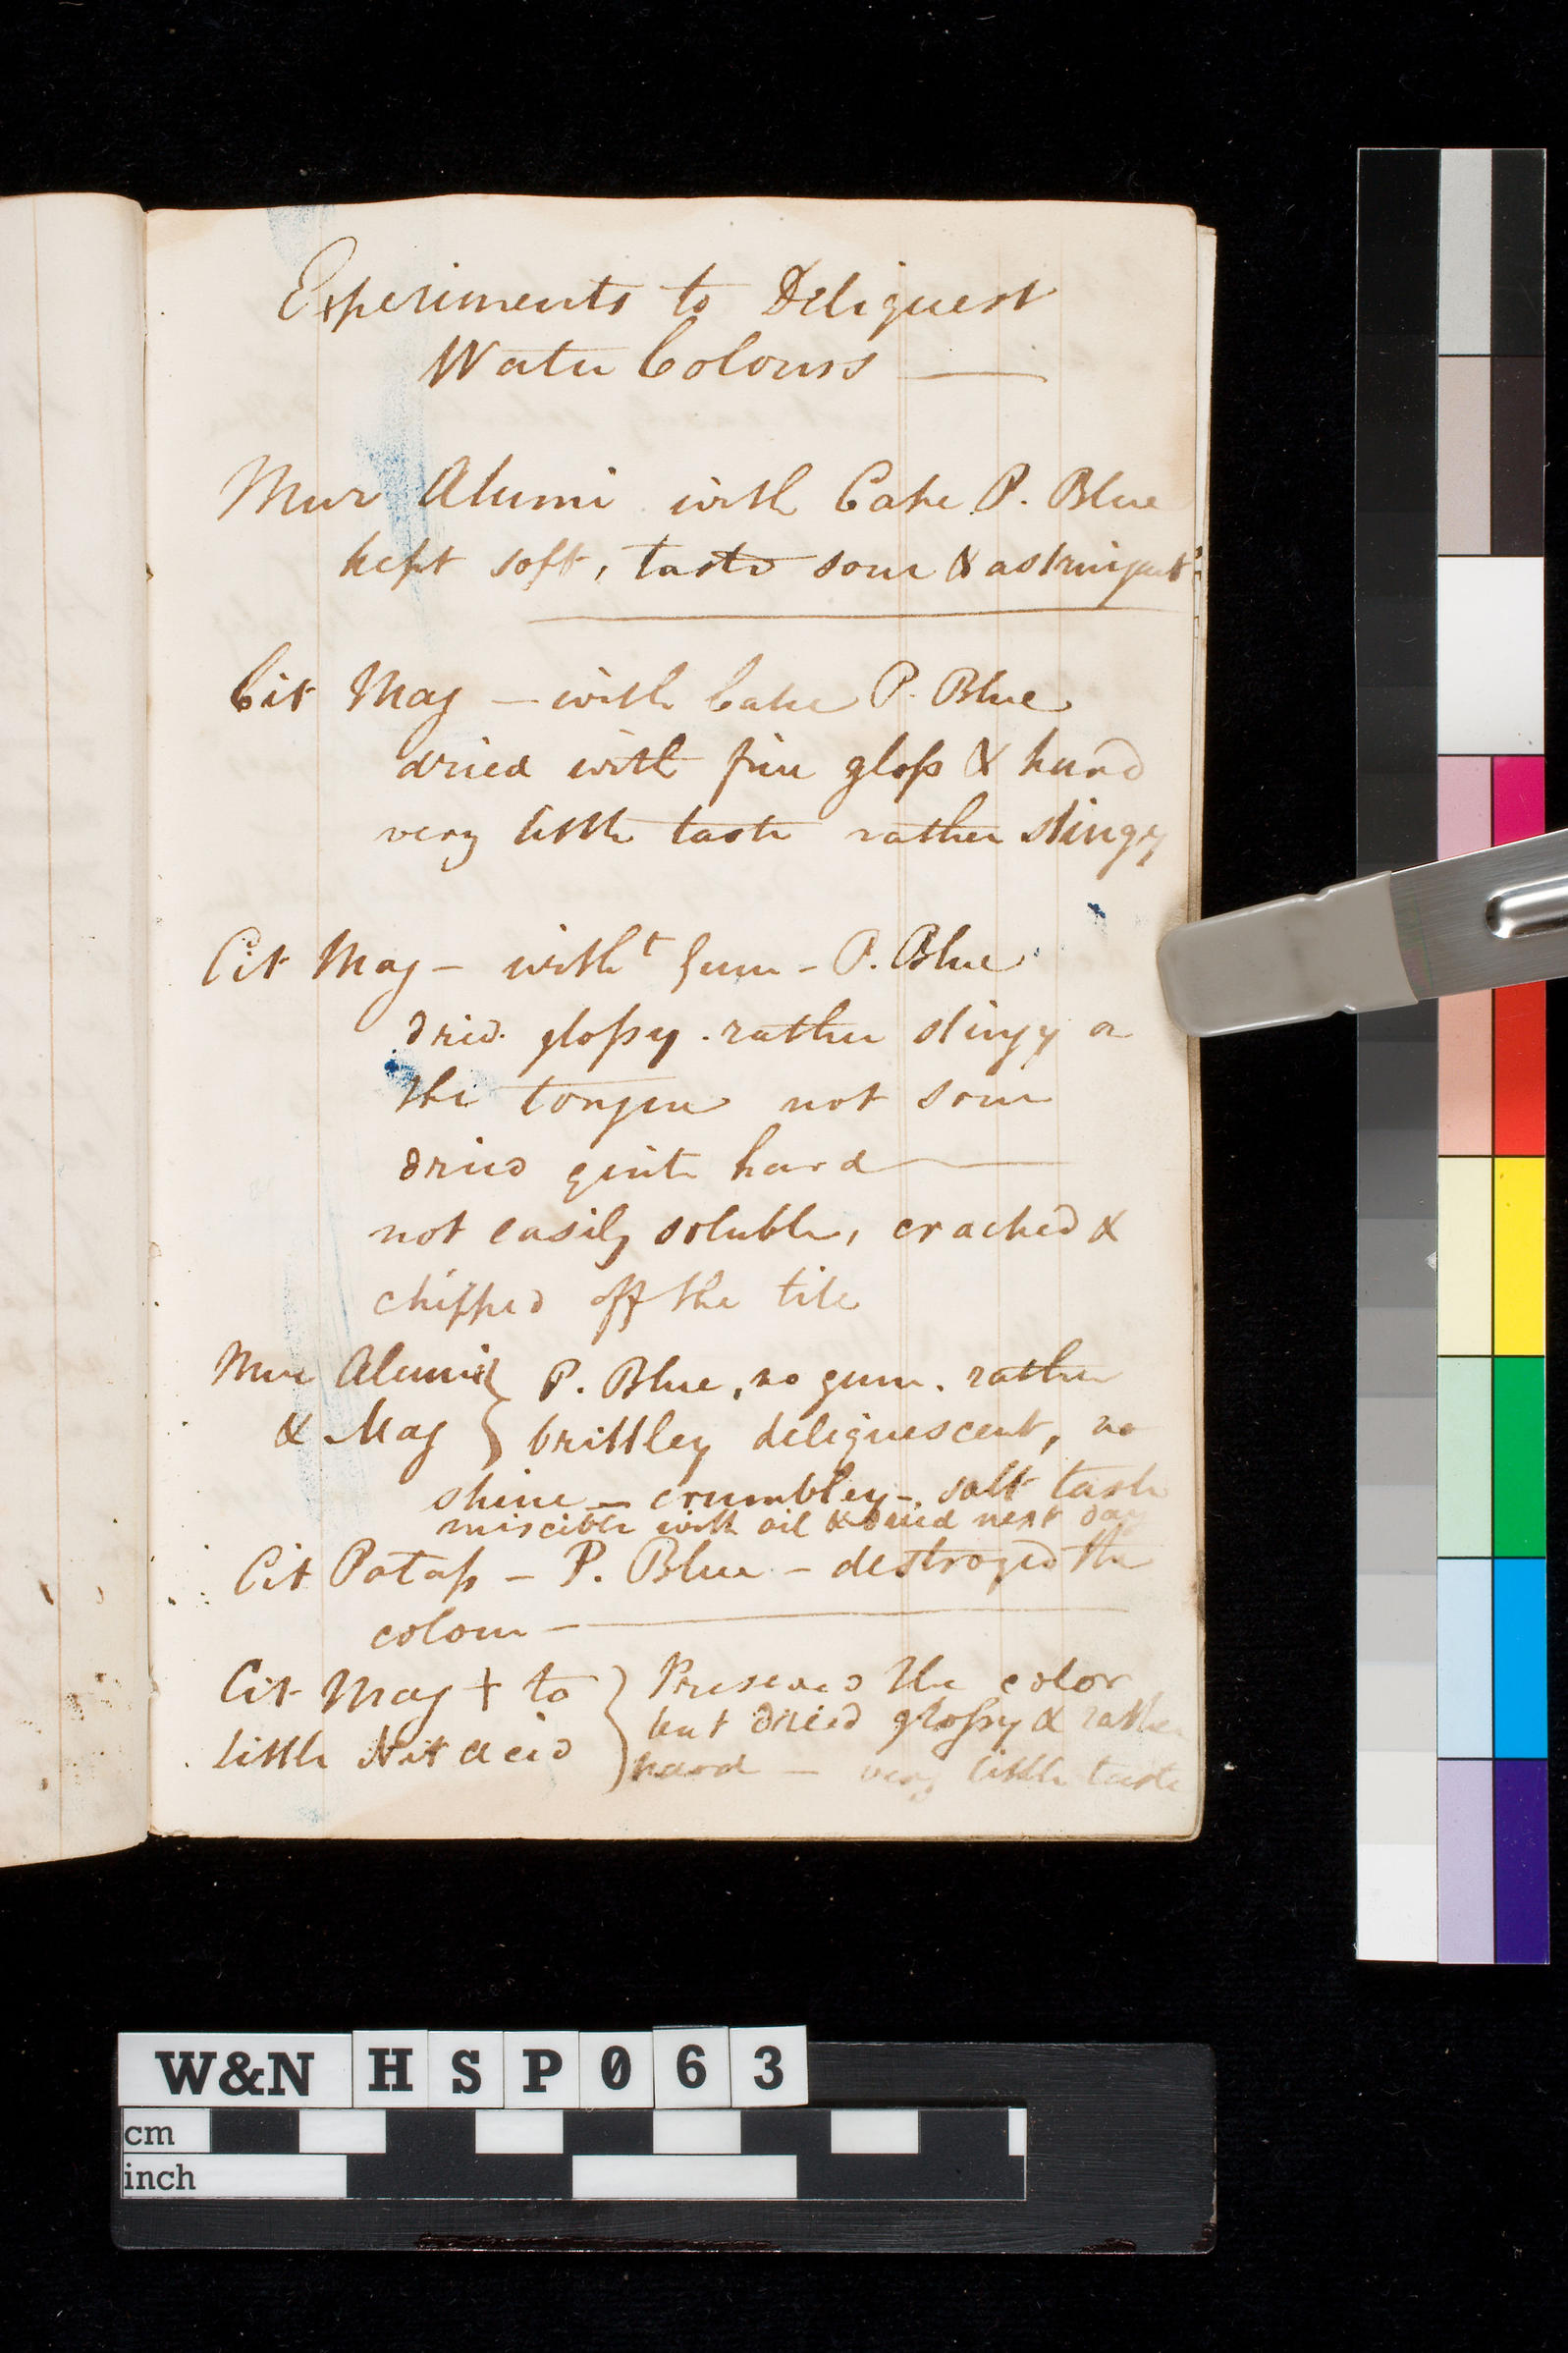 Experiments to Deliquest
Water Colours —
Mur Alumi with Cake P. Blue
kept soft, taste sour & astringent
Cit Mag — with Cake P. Blue
dried with fine gloss & hard
very little taste rather stingy
Cit Mag — witht Gum - P. Blue
dried glossy. rather stingy on
the tongue not sour
dried quite hard —
not easily soluble, cracked &
chipped off the tile
Mur Alumi } P. Blue, no gum. rather
& Mag } brittley deliquescent, no
shine — crumbley -. salt taste
miscible with oil & dried next day
Cit Potass — P. Blue — destroyed the
colour —
Cit Mag + to } Preserved the color
little Nit acid } but dried glossy & rather
hard — very little taste
W&N HSP063
cm
inch